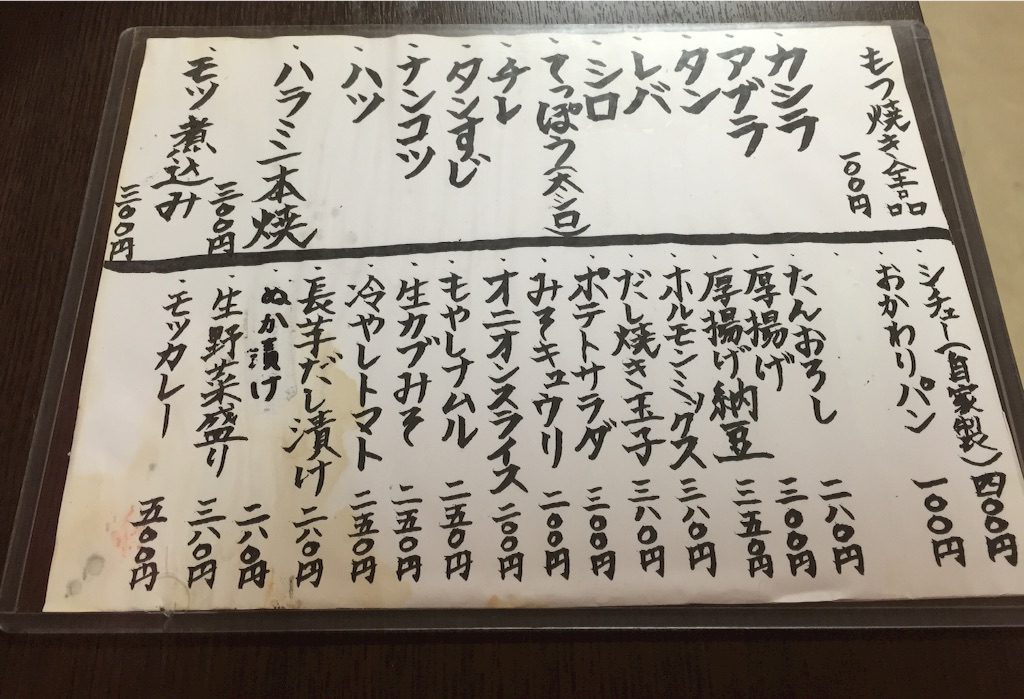 もつ焼き全品 一〇〇円
・カシラ
・アブラ
・タン
・レバ
・シロ
・てっぽう(太シロ)
・チレ
・タンすじ
・ナンコツ
・ハツ
・ハラミ一本焼 三〇〇円
・モツ煮込み 三〇〇円
・シチュー(自家製) 四〇〇円
・おかわりパン 一〇〇円
・たんおろし 二八〇円
・厚揚げ 三〇〇円
・厚揚げ納豆 三五〇円
・ホルモンミックス 三八〇円
・だし焼き玉子 三八〇円
・ポテトサラダ 三〇〇円
・みそキュウリ 二〇〇円
・オニオンスライス 二〇〇円
・もやしナムル 二五〇円
・生カブみそ 二五〇円
・冷やしトマト 二五〇円
・長芋だし漬け 二八〇円
・ぬか漬け 二八〇円
・生野菜盛り 三八〇円
・モツカレー 五〇〇円